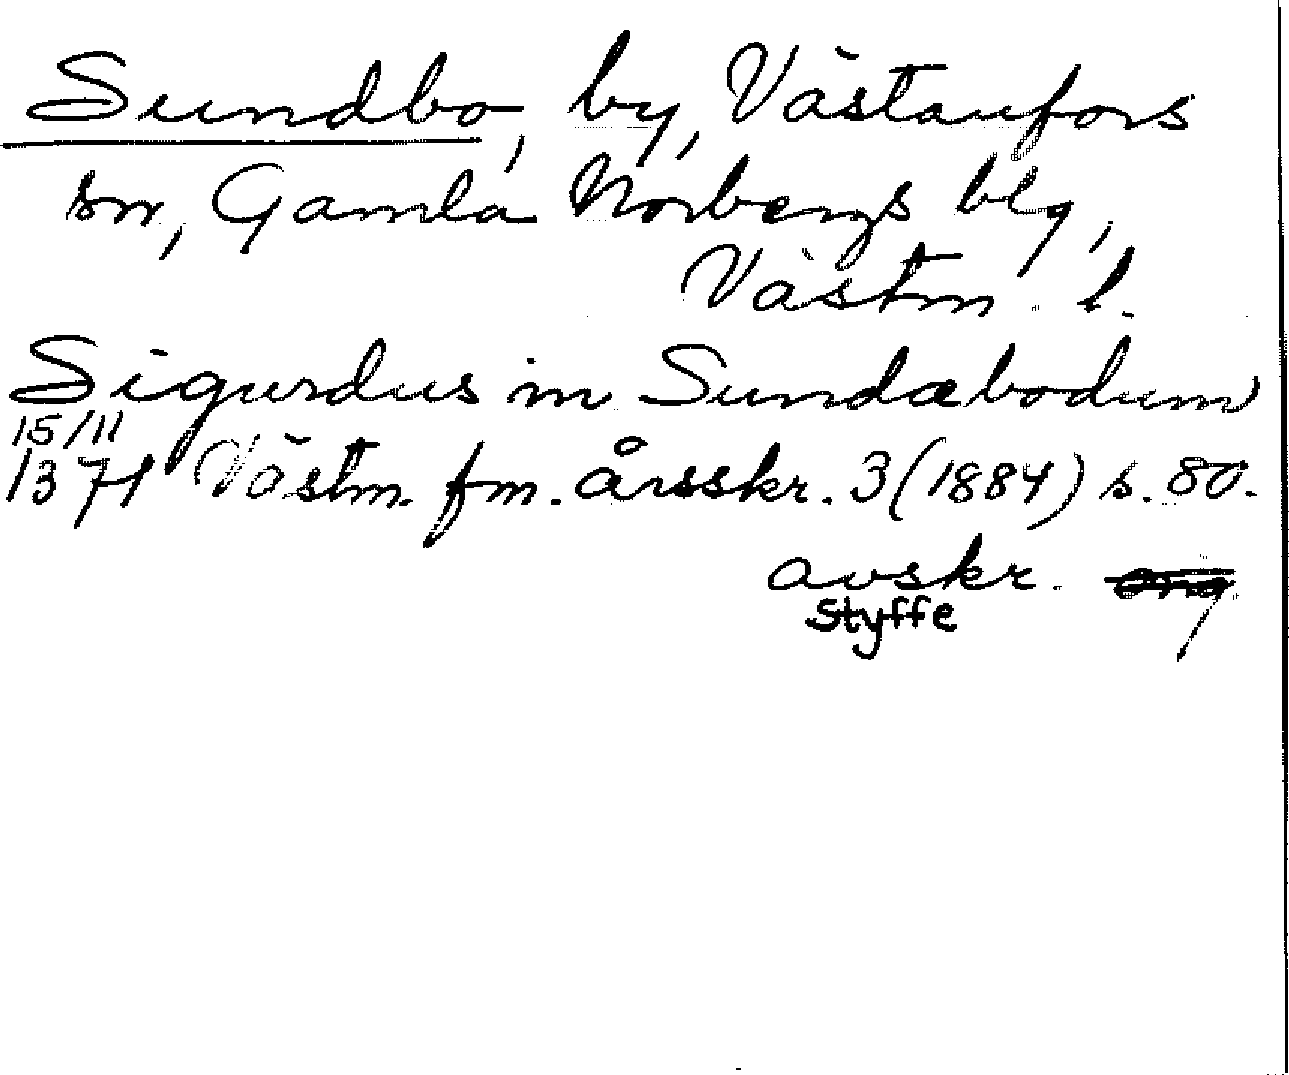 Sundbo, by, Västanfors
sn, Gamla Norbergs blg,
Västm. l.
Sigurdus in Sundæbodum
15/11
1371 Västm. fm. årsskr. 3 (1884) s. 80.
avskr.
Styffe